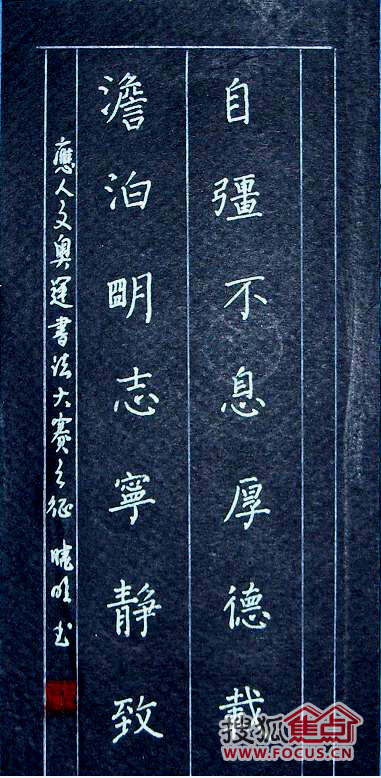 自彊不息厚德載
澹泊朙志寧靜致
應人文奧運書法大賽之征 曉明 书
搜狐焦点
WWW.FOCUS.CN